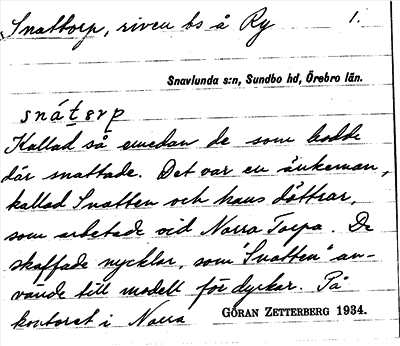 Snattorp, riven bs å Ry 1.
Snavlunda s:n, Sundbo hd, Örebro län.
snátərp
Kallad så emedan de som bodde
där snattade. Det var en änkeman,
kallad Snatten och hans döttrar,
som arbetade vid Norra Torpa. De
skaffade nycklar, som "Snatten" an-
vände till modell för dyrkar. På
kontoret i Norra
GÖRAN ZETTERBERG 1934.